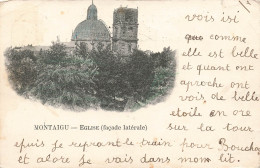 vois isi
comme
elle est belle
et quant ont
aproche ont
vois de belle
etoile en ore
sur la tour
MONTAIGU — EGLISE (façade latérale)
puis je reprant le train pour Bouchou
et alore je vais dans mom lit